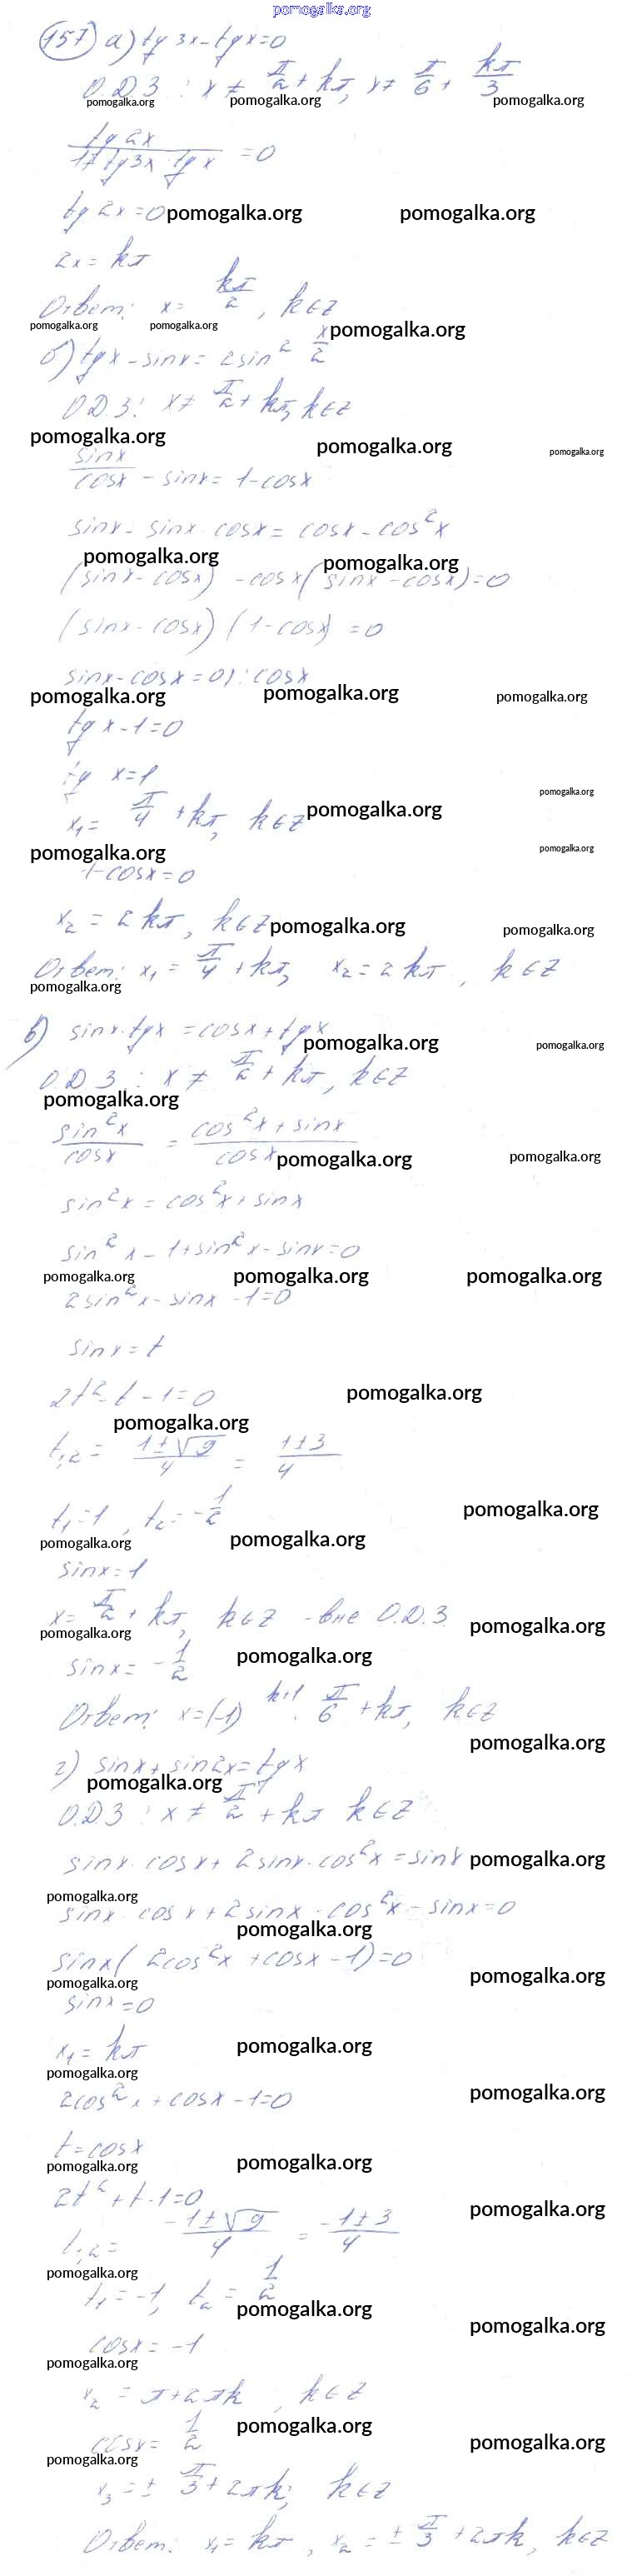 pomogalka.org
157) а) tg 3x - tg x = 0
О.Д.З : x ≠ π/2 + kπ, x ≠ π/6 + kπ/3
pomogalka.org pomogalka.org pomogalka.org
tg 2x / 1 + tg 3x · tg x = 0
tg 2x = 0 pomogalka.org pomogalka.org
2x = kπ
Ответ: x = kπ/2, k ∈ Z
pomogalka.org pomogalka.org pomogalka.org
б) tg x - sin x = 2 sin² x/2
О.Д.З: x ≠ π/2 + kπ, k ∈ Z
pomogalka.org pomogalka.org pomogalka.org
sin x / cos x - sin x = 1 - cos x
sin x - sin x · cos x = cos x - cos² x
pomogalka.org pomogalka.org
(sin x - cos x) - cos x (sin x - cos x) = 0
(sin x - cos x) (1 - cos x) = 0
sin x - cos x = 0 | : cos x
pomogalka.org pomogalka.org pomogalka.org
tg x - 1 = 0
tg x = 1
pomogalka.org
x₁ = π/4 + kπ, k ∈ Z pomogalka.org
pomogalka.org pomogalka.org
1 - cos x = 0
x₂ = 2kπ, k ∈ Z pomogalka.org pomogalka.org
Ответ: x₁ = π/4 + kπ, x₂ = 2kπ, k ∈ Z
pomogalka.org
в) sin x · tg x = cos x + tg x
pomogalka.org pomogalka.org
О.Д.З : x ≠ π/2 + kπ, k ∈ Z
pomogalka.org
sin² x / cos x = cos² x + sin x / cos x
pomogalka.org pomogalka.org
sin² x = cos² x + sin x
sin² x - 1 + sin² x - sin x = 0
pomogalka.org pomogalka.org pomogalka.org
2 sin² x - sin x - 1 = 0
sin x = t
2t² - t - 1 = 0 pomogalka.org
pomogalka.org
t₁,₂ = 1 ± √9 / 4 = 1 ± 3 / 4
t₁ = 1, t₂ = -1/2 pomogalka.org
pomogalka.org pomogalka.org
sin x = 1
x = π/2 + kπ, k ∈ Z - вне О.Д.З pomogalka.org
pomogalka.org
sin x = -1/2 pomogalka.org
Ответ: x = (-1)^(k+1) · π/6 + kπ, k ∈ Z
pomogalka.org
г) sin x + sin 2x = tg x
pomogalka.org
О.Д.З : x ≠ π/2 + kπ k ∈ Z
sin x · cos x + 2 sin x · cos² x = sin x pomogalka.org
pomogalka.org
sin x · cos x + 2 sin x · cos² x - sin x = 0
pomogalka.org
sin x (2 cos² x + cos x - 1) = 0
pomogalka.org pomogalka.org
sin x = 0
x₁ = kπ pomogalka.org
pomogalka.org pomogalka.org
2 cos² x + cos x - 1 = 0
t = cos x
pomogalka.org pomogalka.org
2t² + t - 1 = 0
pomogalka.org
t₁,₂ = -1 ± √9 / 4 = -1 ± 3 / 4
pomogalka.org
t₁ = -1, t₂ = 1/2
pomogalka.org pomogalka.org
cos x = -1
pomogalka.org
x₂ = π + 2πk, k ∈ Z
cos x = 1/2 pomogalka.org pomogalka.org
pomogalka.org
x₃ = ± π/3 + 2πk, k ∈ Z
Ответ: x₁ = kπ, x₂ = ± π/3 + 2πk, k ∈ Z